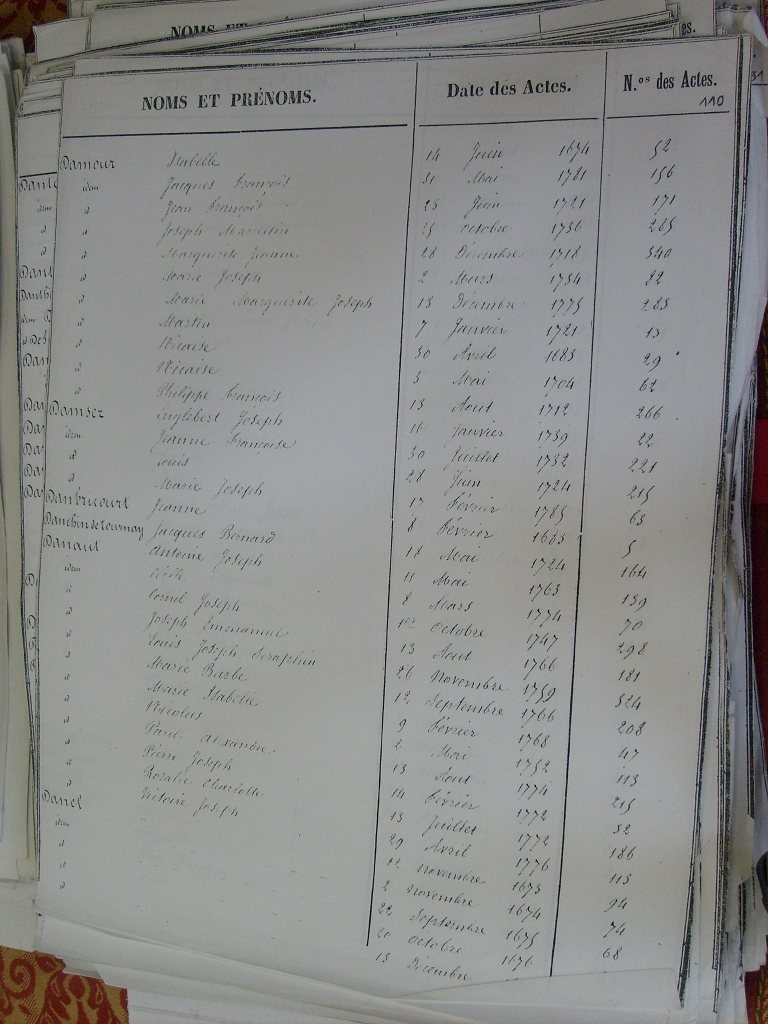 NOMS ET PRÉNOMS. Date des Actes. N.os des Actes.
110
Damour Isabelle 14 Juin 1674 52
idem Jacques François 31 Mai 1781 156
d Jean François 23 Juin 1721 171
d Joseph Marcelin 25 octobre 1736 285
d Marguerite Jeanne 28 Décembre 1718 340
d Marie Joseph 2 Mars 1734 82
d Marie Marguerite Joseph 13 Décembre 1775 283
d Martin 7 Janvier 1721 13
d Nicaise 30 Avril 1683 29
d Nicaise 3 Mai 1704 62
d Philippe François 13 Aout 1712 266
Damsez inglebert Joseph 11 Janvier 1739 22
idem Jeanne Françoise 30 Juillet 1732 221
d Louis 28 Juin 1724 215
d Marie Joseph 17 Février 1785 63
Danbricourt Jeanne 8 Février 1683 5
Danchin de tournay Jacques Bernard 18 Mai 1724 164
Danaut antoine Joseph 11 Mai 1763 139
idem Cécile 8 Mars 1774 70
d Cornil Joseph 1er Octobre 1747 298
d Joseph Emmanuel 13 Aout 1766 181
d Louis Joseph Seraphin 26 Novembre 1759 324
d Marie Barbe 12 Septembre 1766 208
d Marie Isabelle 9 Février 1768 47
d Nicolas 2 Mai 1752 113
d Paul alexandre 13 Aout 1774 215
d Pierre Joseph 14 Février 1772 32
d Rosalie Charlotte 13 Juillet 1772 186
d Victoire Joseph 29 Avril 1776 113
Danel 22 Novembre 1673 94
idem 2 Novembre 1674 74
d 22 Septembre 1675 68
d 20 octobre 1676
d 13 Décembre